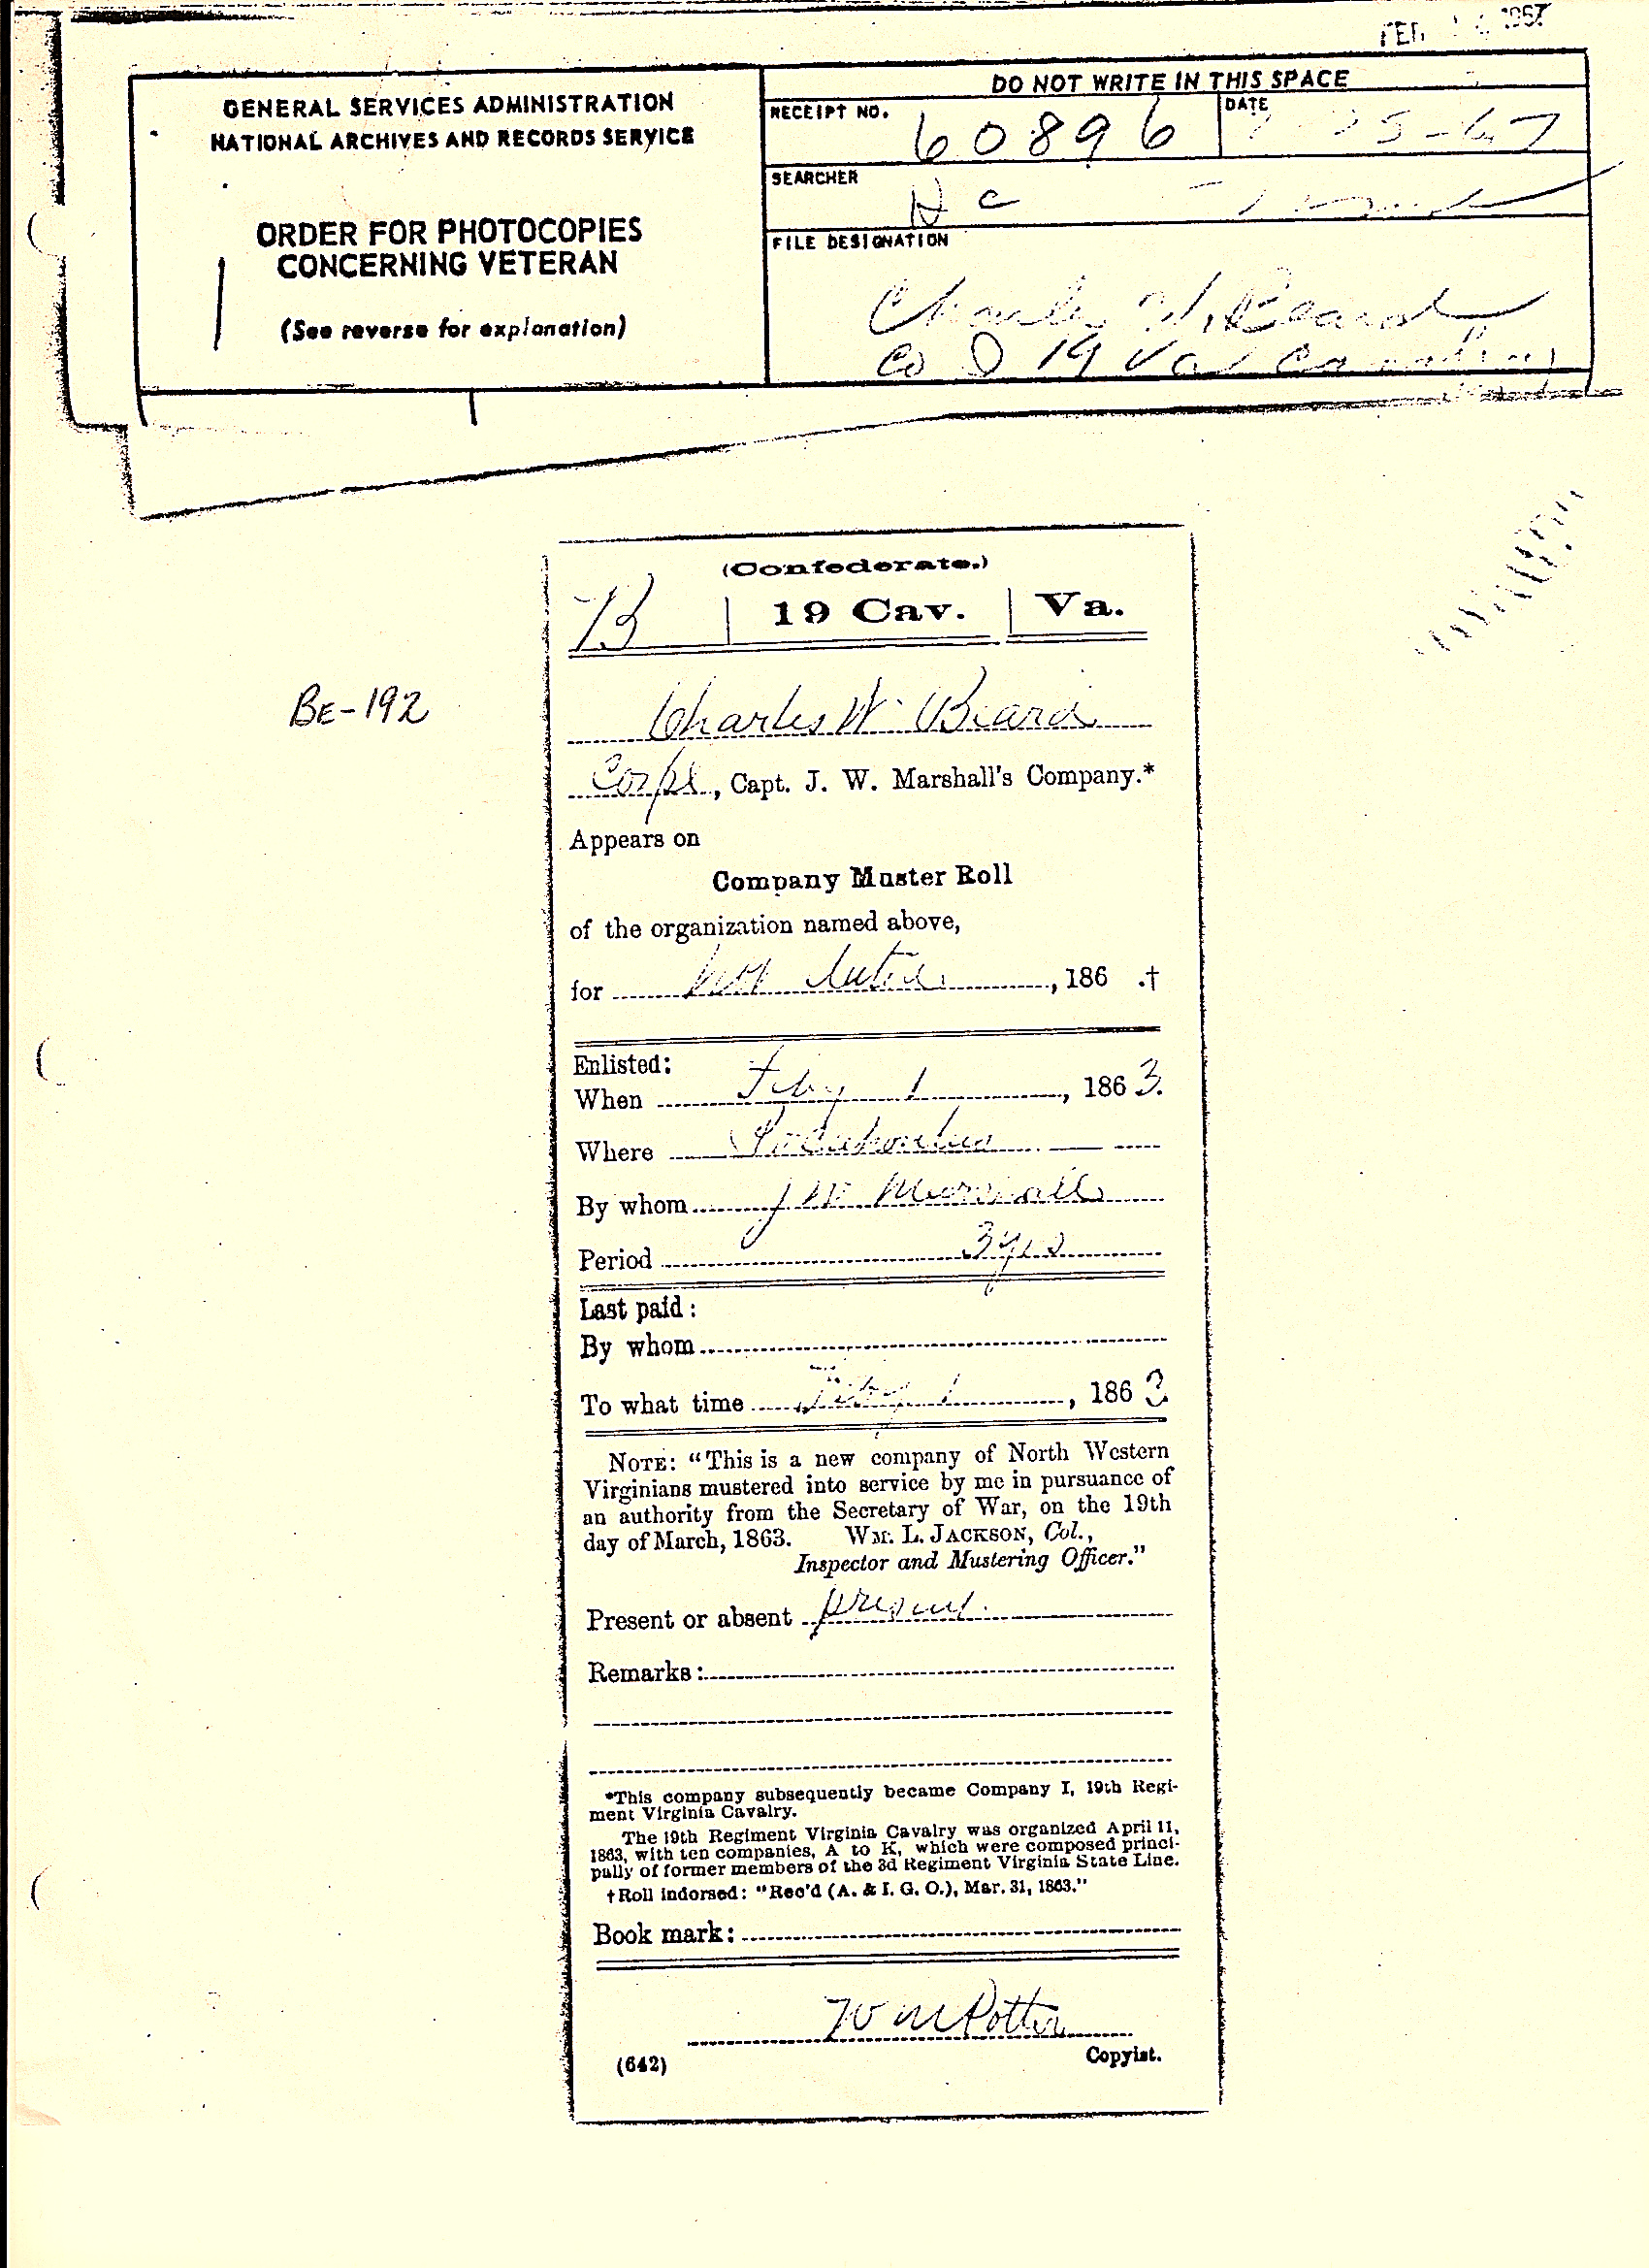 1967
GENERAL SERVICES ADMINISTRATION
NATIONAL ARCHIVES AND RECORDS SERVICE
ORDER FOR PHOTOCOPIES
CONCERNING VETERAN
(See reverse for explanation)
DO NOT WRITE IN THIS SPACE
RECEIPT NO.
60896
DATE
25-67
SEARCHER
FILE DESIGNATION
Charles W. Beard
Co I 19 Va Cavalry
(Confederate.)
B | 19 Cav. | Va.
BE-192
Charles W. Beard
Corpl, Capt. J. W. Marshall's Company.*
Appears on
Company Muster Roll
of the organization named above,
for not dated, 186 .†
Enlisted:
When Feby 1, 1863.
Where Pocahontas
By whom J W Marshall
Period 3 yrs
Last paid:
By whom
To what time Feby 1, 1863
NOTE: "This is a new company of North Western
Virginians mustered into service by me in pursuance of
an authority from the Secretary of War, on the 19th
day of March, 1863. WM. L. JACKSON, Col.,
Inspector and Mustering Officer."
Present or absent present.
Remarks:
*This company subsequently became Company I, 19th Regi-
ment Virginia Cavalry.
The 19th Regiment Virginia Cavalry was organized April 11,
1863, with ten companies, A to K, which were composed princi-
pally of former members of the 3d Regiment Virginia State Line.
†Roll indorsed: "Rec'd (A. & I. G. O.), Mar. 31, 1863."
Book mark:
W M Potter
(642)
Copyist.